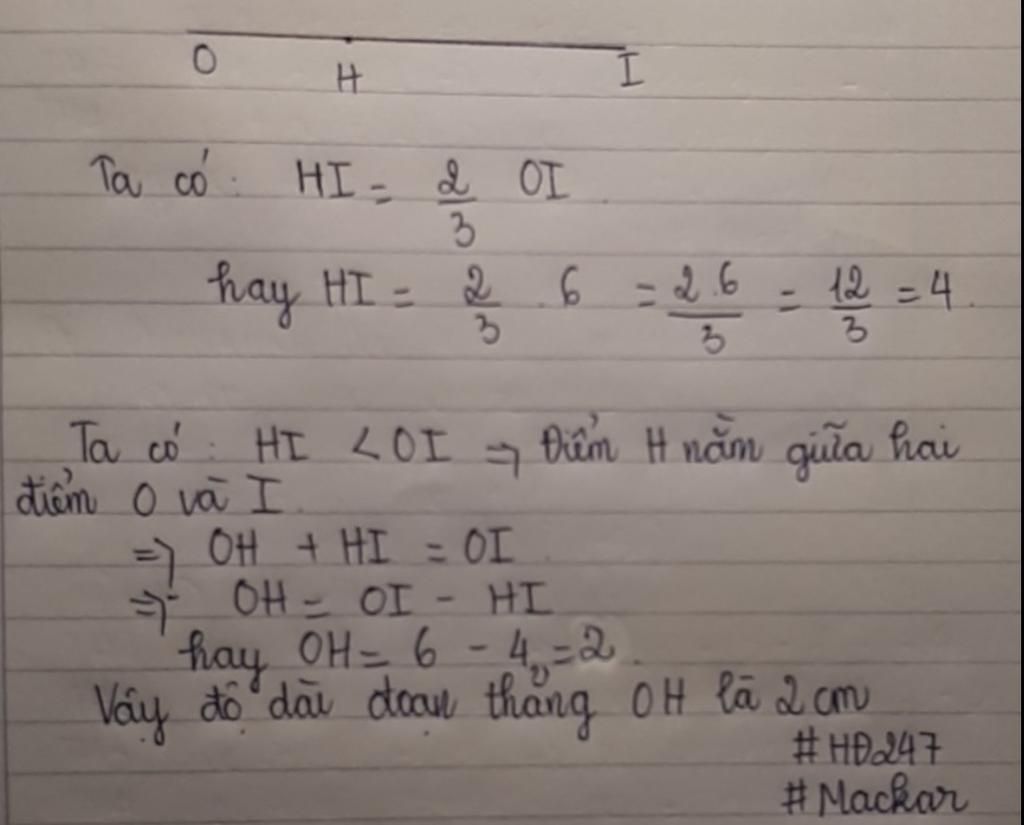 O H I
Ta có: HI = 2/3 OI.
hay HI = 2/3 . 6 = 2.6/3 = 12/3 = 4.
Ta có: HI < OI => Điểm H nằm giữa hai
điểm O và I.
=> OH + HI = OI.
=> OH = OI - HI
hay OH = 6 - 4 = 2.
Vậy độ dài đoạn thẳng OH là 2 cm
#HĐ247
#Mackar